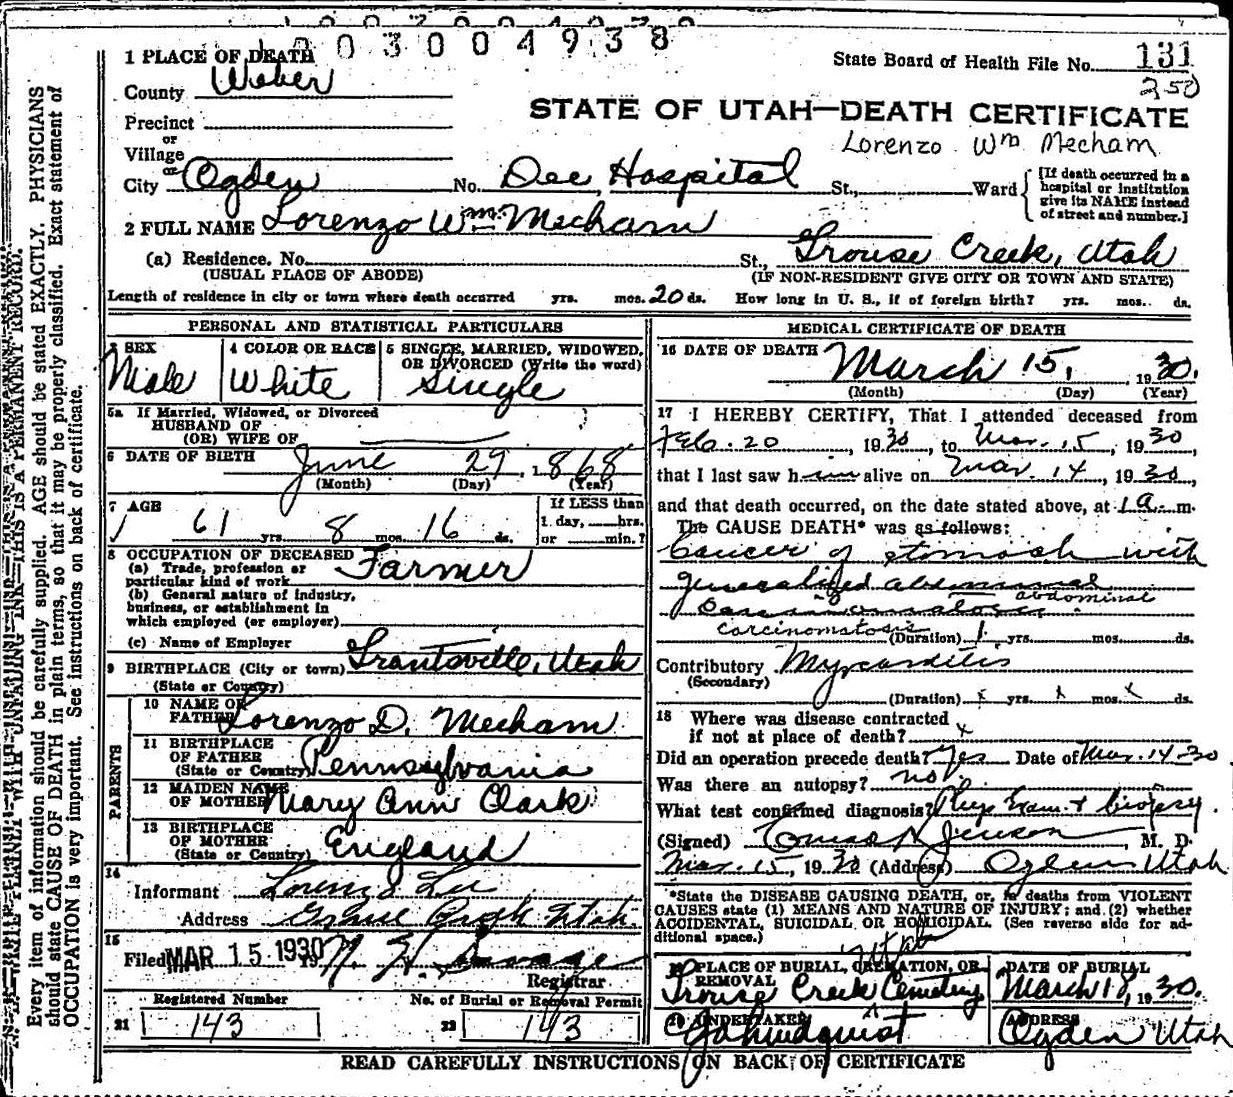 1003004938
1 PLACE OF DEATH
State Board of Health File No. 131
250
County Weber
STATE OF UTAH—DEATH CERTIFICATE
Precinct
or
Village
Lorenzo Wm Mecham
or
City Ogden No. Dee Hospital St., Ward
[If death occurred in a hospital or institution give its NAME instead of street and number.]
2 FULL NAME Lorenzo Wm. Mecham
(a) Residence. No. St., Grouse Creek, Utah
(USUAL PLACE OF ABODE) (IF NON-RESIDENT GIVE CITY OR TOWN AND STATE)
Length of residence in city or town where death occurred yrs. mos. 20 ds. How long in U. S., if of foreign birth? yrs. mos. ds.
PERSONAL AND STATISTICAL PARTICULARS
3 SEX Male
4 COLOR OR RACE White
5 SINGLE, MARRIED, WIDOWED, OR DIVORCED (Write the word) Single
5a If Married, Widowed, or Divorced
HUSBAND OF
(OR) WIFE OF
6 DATE OF BIRTH June 29, 1868
(Month) (Day) (Year)
7 AGE 61 yrs. 8 mos. 16 ds.
If LESS than
1 day, hrs.
or min.?
8 OCCUPATION OF DECEASED
(a) Trade, profession or
particular kind of work Farmer
(b) General nature of industry,
business, or establishment in
which employed (or employer)
(c) Name of Employer
9 BIRTHPLACE (City or town) Grantsville, Utah
(State or Country)
PARENTS
10 NAME OF
FATHER Lorenzo D. Mecham
11 BIRTHPLACE
OF FATHER
(State or Country) Pennsylvania
12 MAIDEN NAME
OF MOTHER Mary Ann Clark
13 BIRTHPLACE
OF MOTHER
(State or Country) England
14
Informant Lorenzo Lee
Address Grouse Creek Utah.
15
Filed MAR 15 1930 19
Registrar
Registered Number
21 143
No. of Burial or Removal Permit
22 143
MEDICAL CERTIFICATE OF DEATH
16 DATE OF DEATH March 15, 1930.
(Month) (Day) (Year)
17 I HEREBY CERTIFY, That I attended deceased from
Feb. 20, 1930, to Mar. 15, 1930
that I last saw him alive on Mar. 14, 1930,
and that death occurred, on the date stated above, at 1 a. m.
The CAUSE DEATH* was as follows:
Cancer of stomach with
generalized abdominal
abdominal
carcinomatosis.
carcinomatosis
(Duration) 1 yrs. mos. ds.
Contributory Myocarditis
(Secondary)
(Duration) x yrs. x mos. x ds.
18 Where was disease contracted
if not at place of death? x
Did an operation precede death? Yes Date of Mar. 14 30
Was there an autopsy? no
What test confirmed diagnosis? Phys Exam. & biopsy.
(Signed) Jenson, M. D.
Mar. 15, 1930 (Address) Ogden Utah
*State the DISEASE CAUSING DEATH, or, in deaths from VIOLENT
CAUSES state (1) MEANS AND NATURE OF INJURY; and (2) whether
ACCIDENTAL, SUICIDAL OR HOMICIDAL. (See reverse side for ad-
ditional space.)
19 PLACE OF BURIAL, CREMATION, OR
REMOVAL
Utah
Grouse Creek Cemetery
DATE OF BURIAL
March 18, 1930.
20 UNDERTAKER
Lindquist
ADDRESS
Ogden Utah
READ CAREFULLY INSTRUCTIONS ON BACK OF CERTIFICATE
N. B.—WRITE PLAINLY WITH UNFADING INK—THIS IS A PERMANENT RECORD.
Every item of information should be carefully supplied. AGE should be stated EXACTLY. PHYSICIANS
should state CAUSE OF DEATH in plain terms, so that it may be properly classified. Exact statement of
OCCUPATION is very important. See instructions on back of certificate.